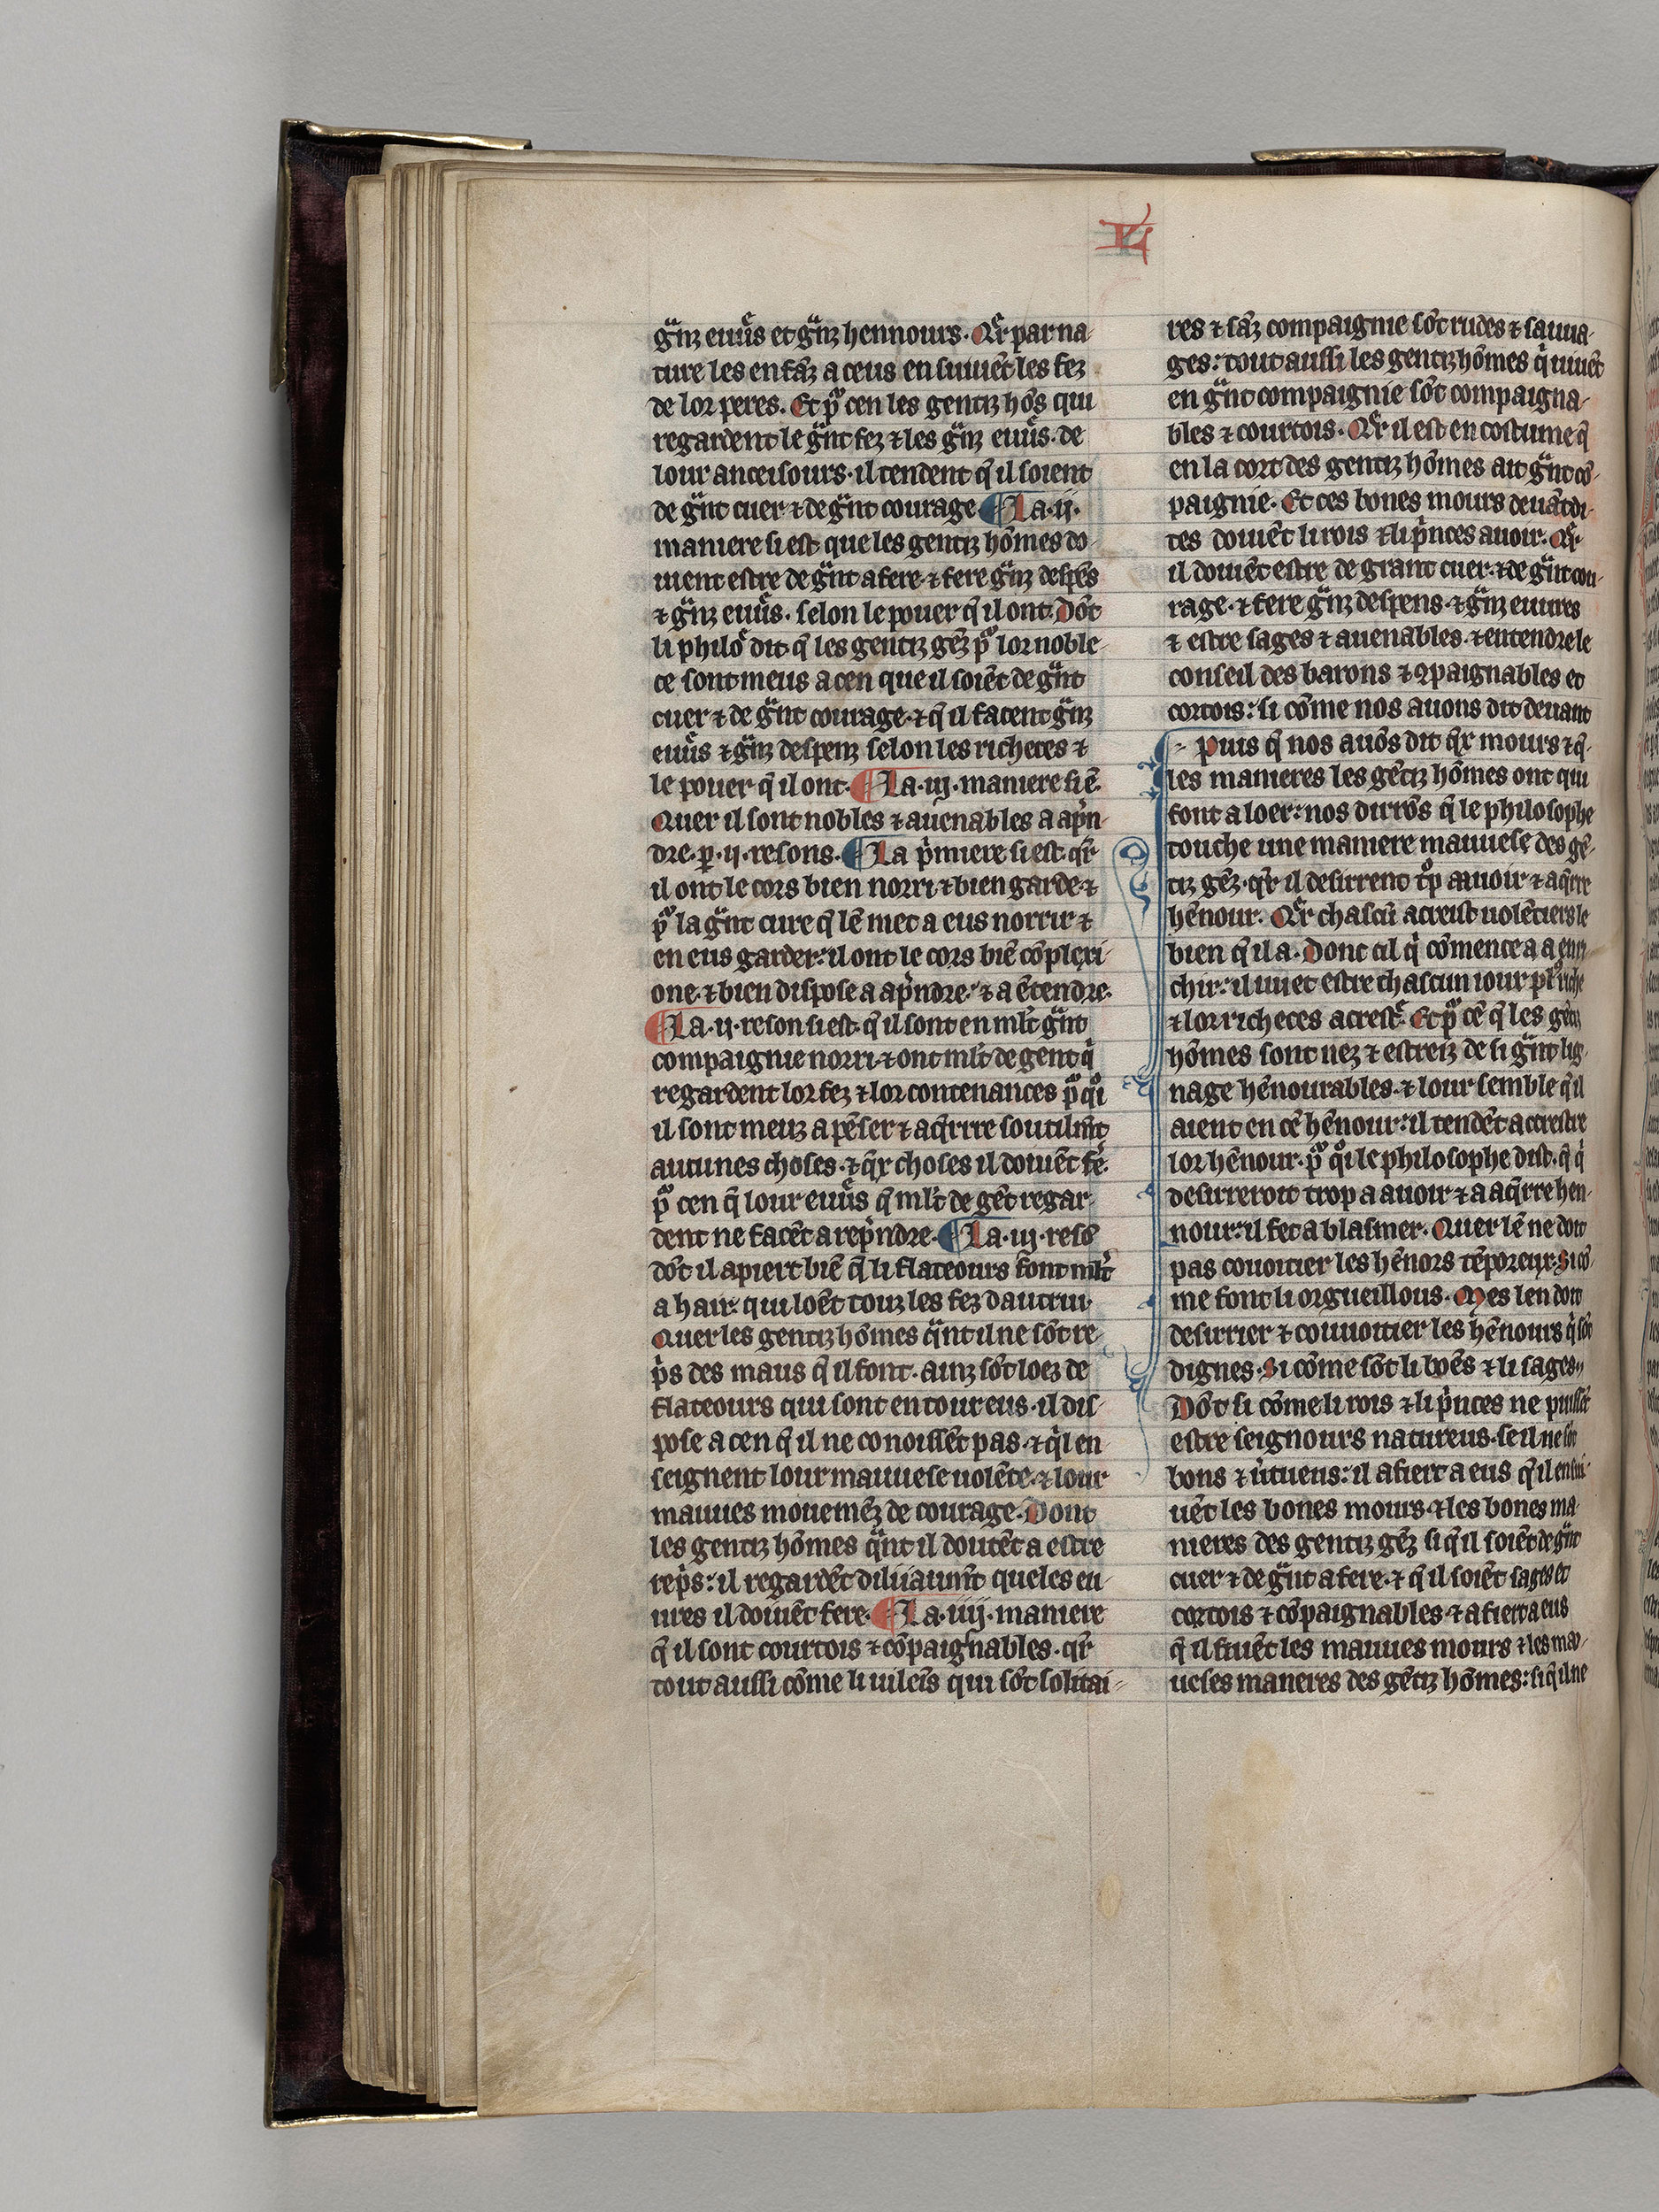 L
gᵃnz euuͤs et gᵃnz hennours. Qͤr par na
ture les enfāz a ceus ensuiuēt les fez
de lor peres. Et pͦ cen les gentiz hōs qui
regardent le gᵃnt fez ⁊ les gᵃnz euuͤs de
lour anceisours. il tendent q̄ il soient
de gᵃnt cuer ⁊ de gᵃnt courage ¶ La .ij.
maniere si est que les gentiz hōmes do
iuent estre de gᵃnt afere. ⁊ fere gᵃnz despēs
⁊ gᵃnz euuͤs. selon le pouer q̄ il ont. Dōt
li philoͤ dit q̄ les gentiz gēz pͦ lor noble
ce sont meus a cen que il soiēt de gᵃnt
cuer ⁊ de gᵃnt courage. ⁊ q̄ il facent gᵃnz
euuͤs ⁊ gᵃnz despenz selon les richeces ⁊
le pouer q̄ il ont. ¶ La .iij. maniere si ē.
Quer il sont nobles ⁊ auenables a apͥn
dre. ꝑ .ij. resons. ¶ La pͥmiere si est. qͤr
il ont le cors bien norri ⁊ bien garde. ⁊
pͦ la gᵃnt cure q̄ lē met a eus norrir ⁊
en eus garder: il ont le cors biē cōplexi
one. ⁊ bien dispose a apͥndre. ⁊ a ētendre.
¶ La .ij. reson si est. q̄ il sont en ml̄t gᵃnt
compaignie norri. ⁊ ont ml̄t de gent qͥ
regardent lor fez ⁊ lor contenances pͦ qͦi
il sont meuz a pēser ⁊ a q̄rrre soutilmt̄
aucunes choses. ⁊ qͤx choses il doiuēt fē.
pͦ cen q̄ lour euuͤs q̄ ml̄t de gēt regar
dent ne facēt a repͥndre. ¶ La .iij. resō
dōt il apiert biē q̄ li flateours font ml̄t
a hair. qui loēt touz les fez dautrui.
Quer les gentiz hōmes qᵃnt il ne sōt re
pͥs des maus q̄ il font. ainz sōt loez de
flateours qui sont entour eus. il dis
pose a cen q̄ il ne conoissēt pas. ⁊ q̄l en
seignent lour mauuese uolēte. ⁊ lour
mauues mouemēz de courage. Dont
les gentiz hōmes qᵃnt il doutēt a estre
repͥs: il regardēt diliiaumt̄ queles eu
ures il doiuēt fere. ¶ La .iiij. maniere
q̄ il sont courtois ⁊ cōpaignables. qͤr
tout aussi cōme li uileīs qui sōt solitai
res ⁊ sāz compaignie sōt rudes ⁊ sauua
ges: tout aussi les gentiz hōmes qͥ uiuēt
en gᵃnt compaignie sōt compaigna
bles ⁊ courtois. Qͤr il est en costume q̄
en la cort des gentiz hōmes ait gᵃnt cō
paignie. Et ces bones mours deuāt di
tes doiuēt li rois ⁊ li pͥnces auoir. Qͤr
il doiuēt estre de grant cuer. ⁊ de gᵃnt cou
rage. ⁊ fere gᵃnz despens. ⁊ gᵃnz euures
⁊ estre sages ⁊ auenables. ⁊ entendre le
conseil des barons ⁊ ꝯpaignables et
cortois: si cōme nos auons dit deuant
Puis q̄ nos auōs dit qͤx mours ⁊ q̄
les manieres les gētiz hōmes ont qui
font a loer: nos dirrōs q̄ le philosophe
touche une maniere mauuese des gē
tiz gēz. qͤr il desirrent tͦp a auoir ⁊ a q̄rre
hēnour. Qͤr chascū acreist uolētiers le
bien q̄ il a. Donc cil qͥ cōmence a a enri
chir: il uuet estre chascun iour plͧ riche
⁊ lor richeces acrestͤ. Et pͦ cē q̄ les gētiz
hōmes sont nez ⁊ estreiz de si gᵃnt lig
nage hēnourables. ⁊ lour semble q̄ il
aient en cē hēnour: il tendēt a crestre
lor hēnour. pͦ qͦi le philosophe dist. q̄ qͥ
desirreroit trop a auoir ⁊ a aq̄rre hen
nour: il fet a blasmer. Quer lē ne doit
pas couoitier les hēnors tēporeux. Si cō
me font li orgueillous. Mes len doit
desirrier ⁊ couuoitier les hēnours qͥ sōt
dignes. Si cōme sōt li boēs ⁊ li sages.
Dōt si cōme li rois ⁊ li pͥnces ne puissēt
estre seignours natureus. se il ne sōt
bons ⁊ uͥtueus: il afiert a eus q̄ il ensui
uēt les bones mours. ⁊ les bones ma
nieres des gentiz gēz si q̄ il soiēt de gᵃnt
cuer ⁊ de gᵃnt afere. ⁊ q̄ il soiēt sages et
cortois ⁊ cōpaignables. ⁊ afiert a eus
q̄ il fuiēt les mauues mours ⁊ les mau
ueses maneres des gētiz hōmes: si q̄ il ne